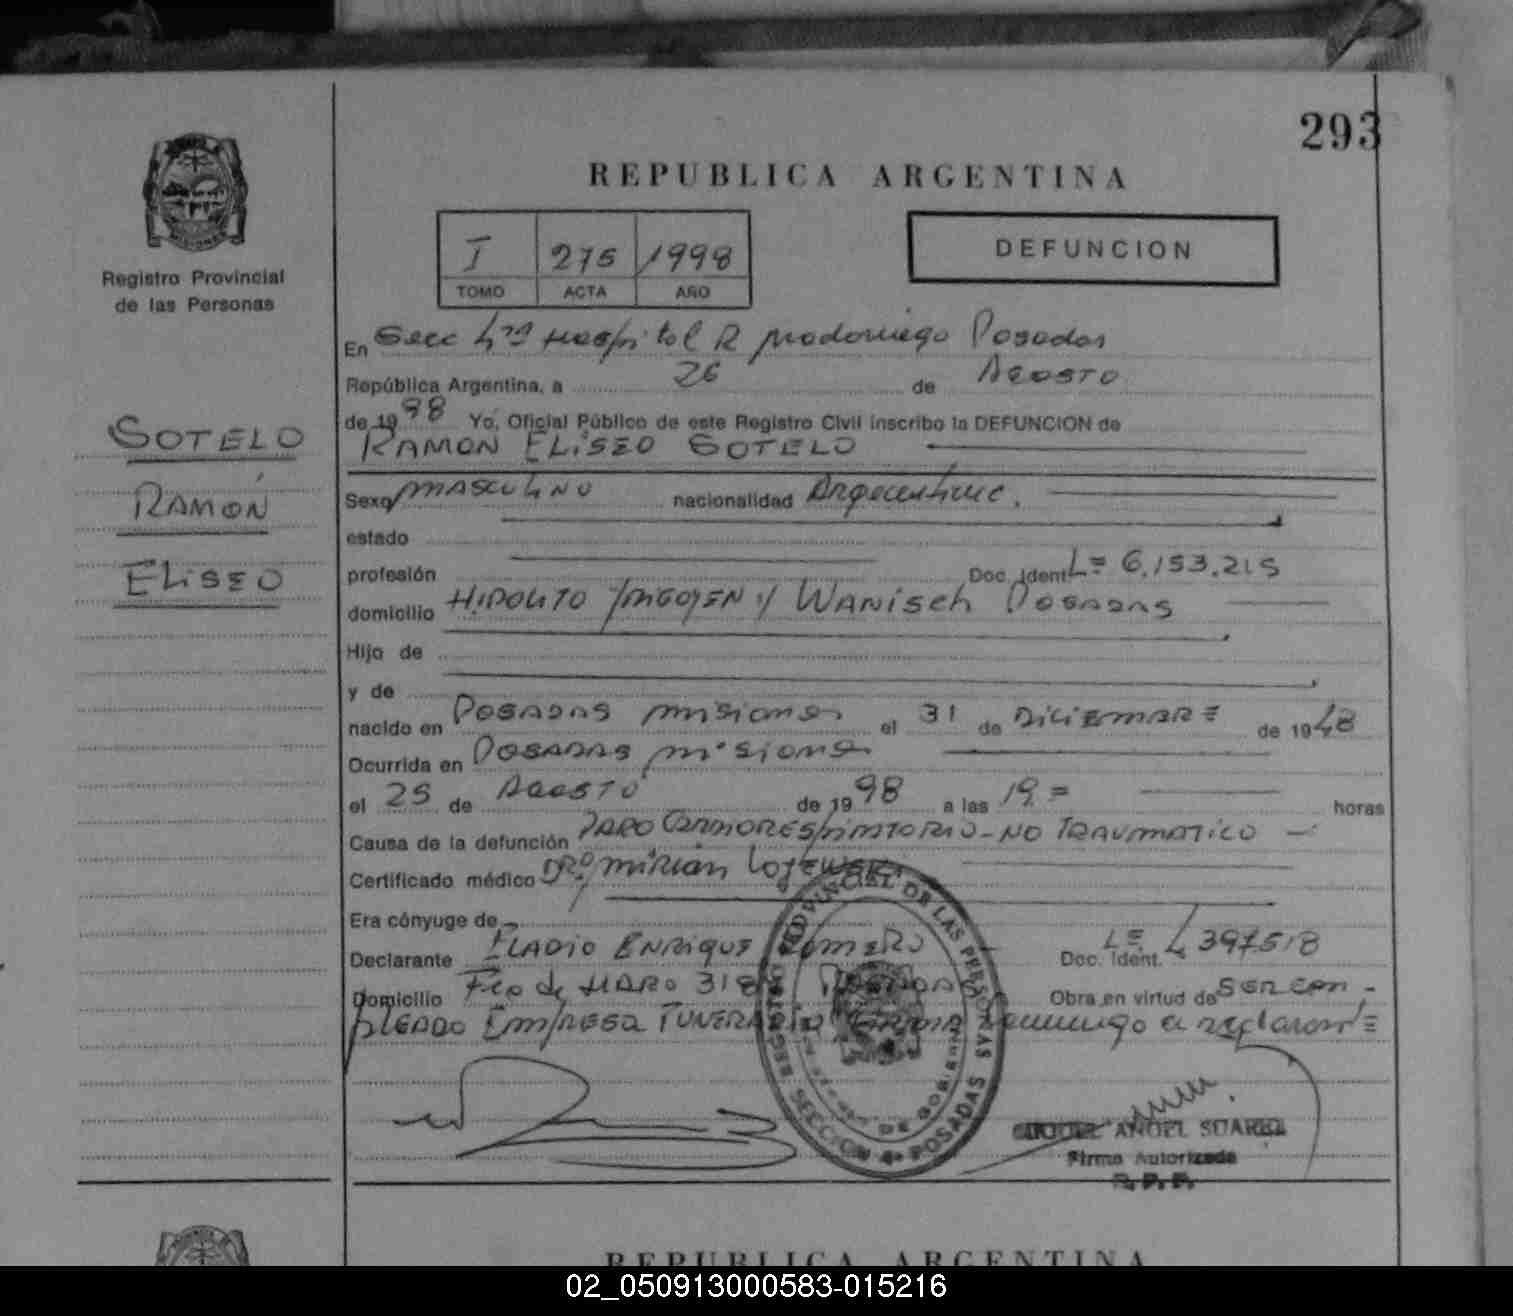 293
REPUBLICA ARGENTINA
Registro Provincial
de las Personas
I 275 1998
TOMO ACTA AÑO
DEFUNCION
En Secc 4ta Hospital R Madariaga Posadas
República Argentina, a 26 de AGOSTO
de 1998 Yo, Oficial Público de este Registro Civil inscribo la DEFUNCION de
RAMON ELISEO SOTELO
SOTELO
RAMÓN
ELISEO
Sexo MASCULINO nacionalidad Argentina.
estado
profesión Doc. Ident. L= 6.153.215
domicilio HIPOLITO YRIGOYEN y WANISCH POSADAS
Hijo de
y de
nacido en POSADAS MISIONES el 31 de DICIEMBRE de 1948
Ocurrida en POSADAS MISIONES
el 25 de AGOSTO de 1998 a las 19 = horas
Causa de la defunción PARO CARDIORESPIRATORIO - NO TRAUMATICO
Certificado médico DRa. MIRIAN
Era cónyuge de
Declarante ELADIO ENRIQUE ROMERO Doc. Ident. LE 4397518
Domicilio Fco de HARO 318 POSADAS Obra en virtud de SER EM-
PLEADO EMPRESA FUNERARIA
REGISTRO PROVINCIAL DE LAS PERSONAS
SECCION 4a POSADAS
MIGUEL ANGEL SUAREZ
Firma Autorizada
R. P. P.
REPUBLICA ARGENTINA
02_050913000583-015216